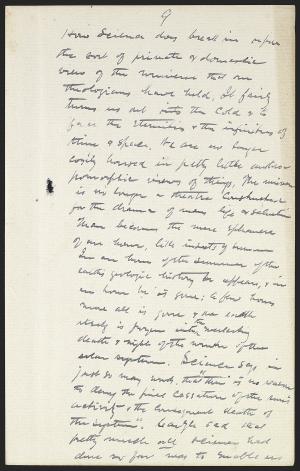 9
How Science does break in upon
the sort of private & domestic
view of the universe that our
theologians have held. It fairly
turns us out into the cold & to
face the Eternities & the infinities of
time & space. We are no longer
cosily housed in pretty little anthro-
pomorphic views of things. The universe
is no longer a theatre constructed
for the drama of man's life & salvation
Man becomes the mere ephemera
of an hour, like insects of summer
In an hour of the summer of the
earth's geologic history he appears, & in
an hour he is gone; a few hours
more all is gone & the earth
itself is frozen into the
death & night of the winter of the
solar system. Science says in
just so many words, that "there is no
to deny the final cessation of the sun's
activity & the consequent death of
the system". Carlyle said that
pretty much all science had
done so far was to enable us